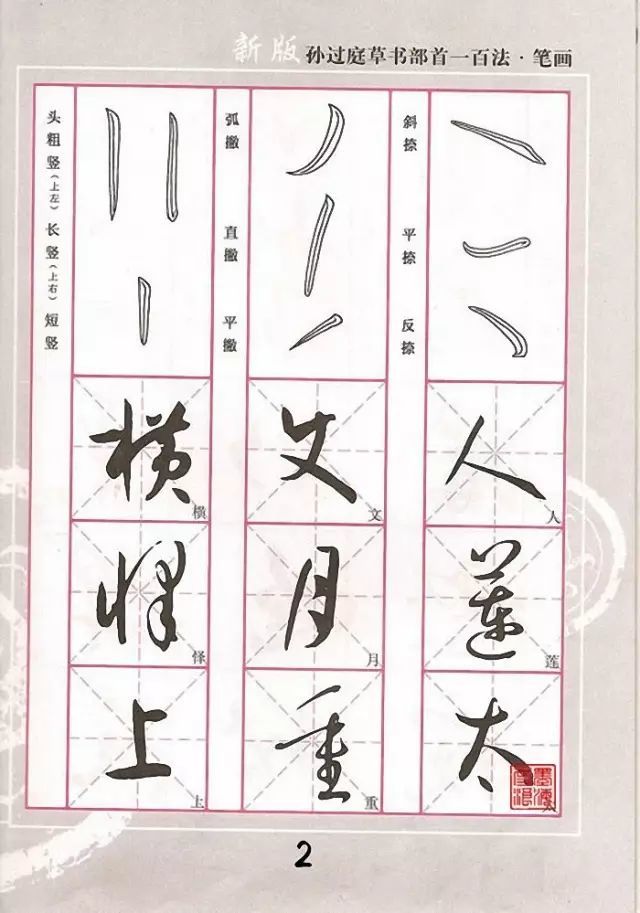 新版 孙过庭草书部首一百法·笔画
头粗竖(上左) 长竖(上右) 短竖
弧撇 直撇 平撇
斜捺 平捺 反捺
横 文 人
横 文 人
怿 月 莲
怿 月 莲
上 重 太
上 重 太
2